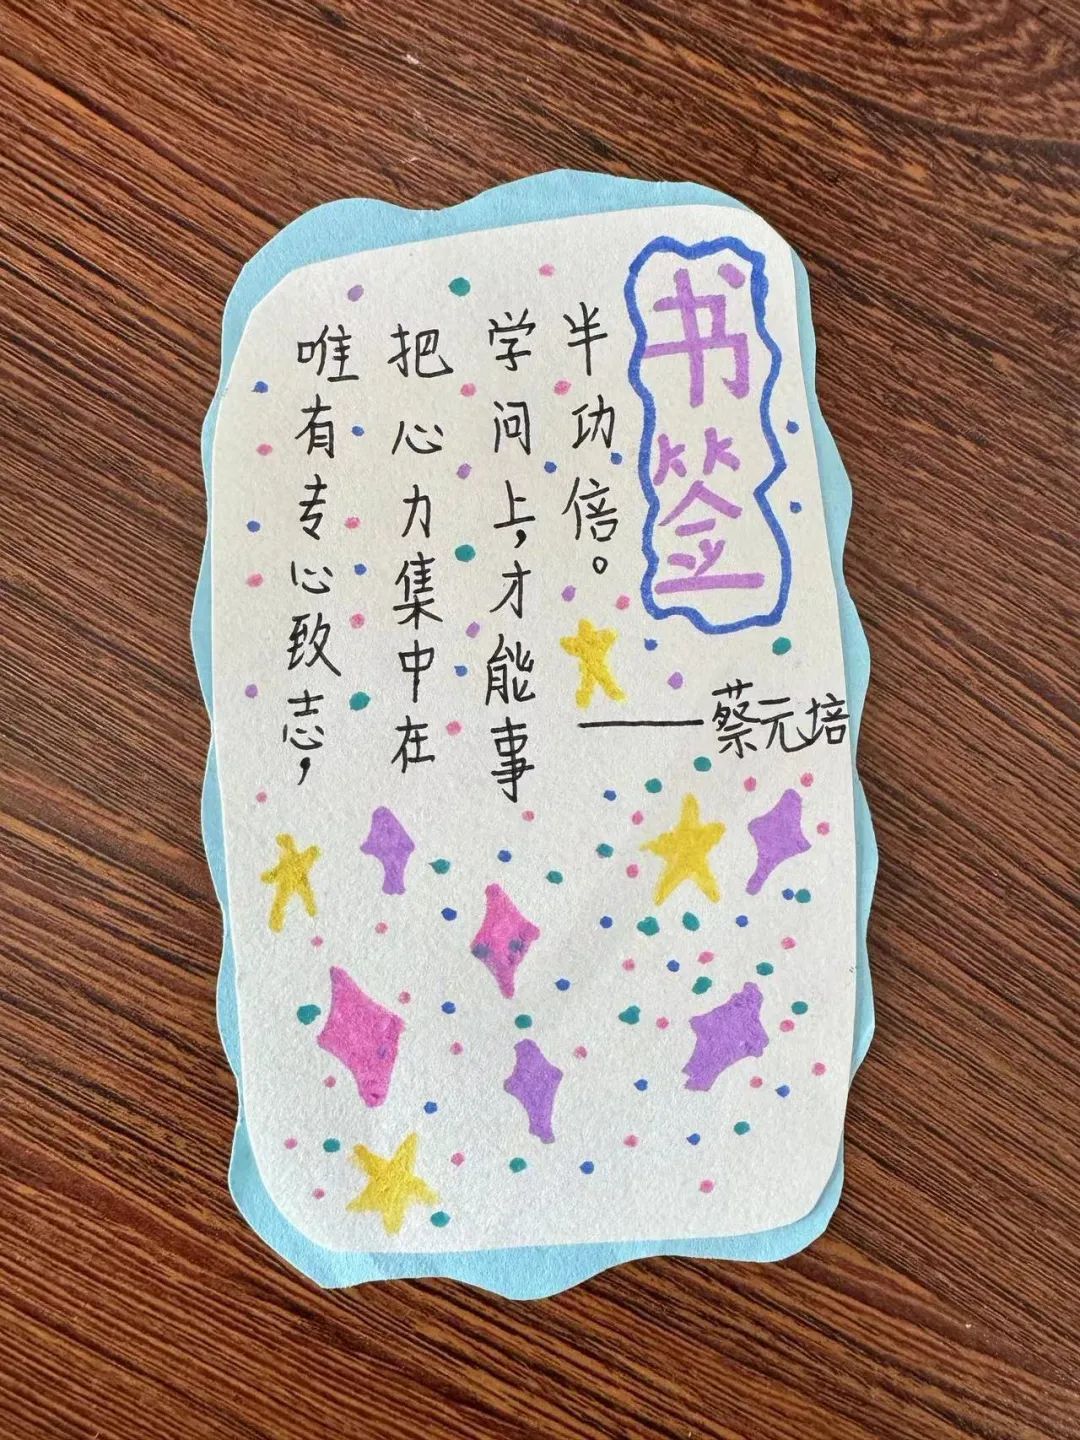 书签
唯有专心致志，
把心力集中在
学问上，才能事
半功倍。
——蔡元培